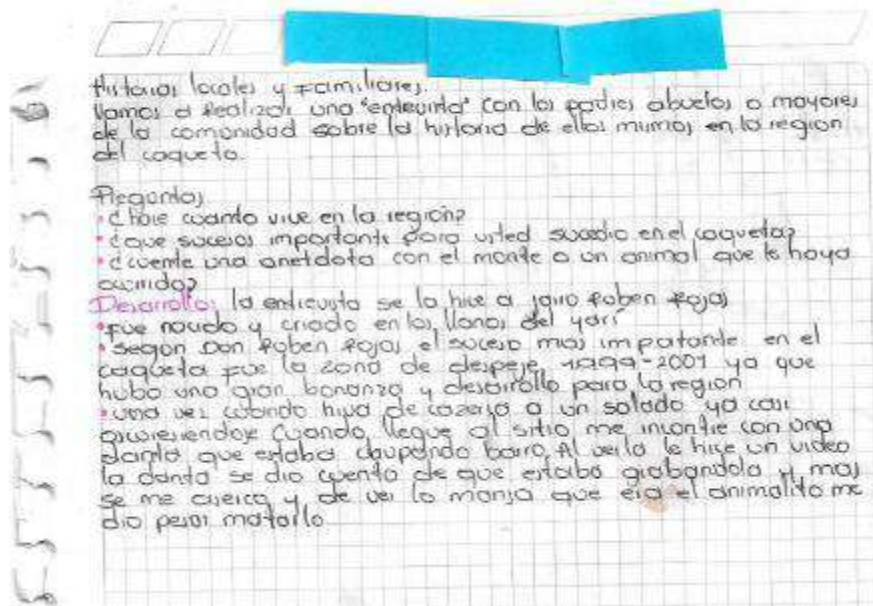 Historias locales y Familiares.
Vamos a Realizar una "entrevista" con los padres abuelos o mayores
de la comunidad sobre la historia de ellos mismos en la region
del caqueta.
Preguntas
• ¿hace cuanto vive en la región?
• ¿que sucesos importante para usted sucedio en el caqueta?
• ¿cuente una anetdota con el monte o un animal que le haya
ocurrido?
Desarrollo: la entrevista se la hice a jairo Ruben Rojas
• fue nacido y criado en los llanos del yarí
• segun Don Ruben Rojas el suceso mas impotante en el
caqueta fue la zona de despeje 1999-2001 ya que
hubo una gran bonanza y desarrollo para la region
• una ves cuando hiva de cazeria a un salado ya casi
oscuresiendose cuando llegue al sitio me incontre con una
danta que estaba chupando barro, Al verla le hice un video
la danta se dio cuenta de que estaba grabandola y mas
se me aserca y de ver lo mansa que era el animalito me
dio pesar matarlo